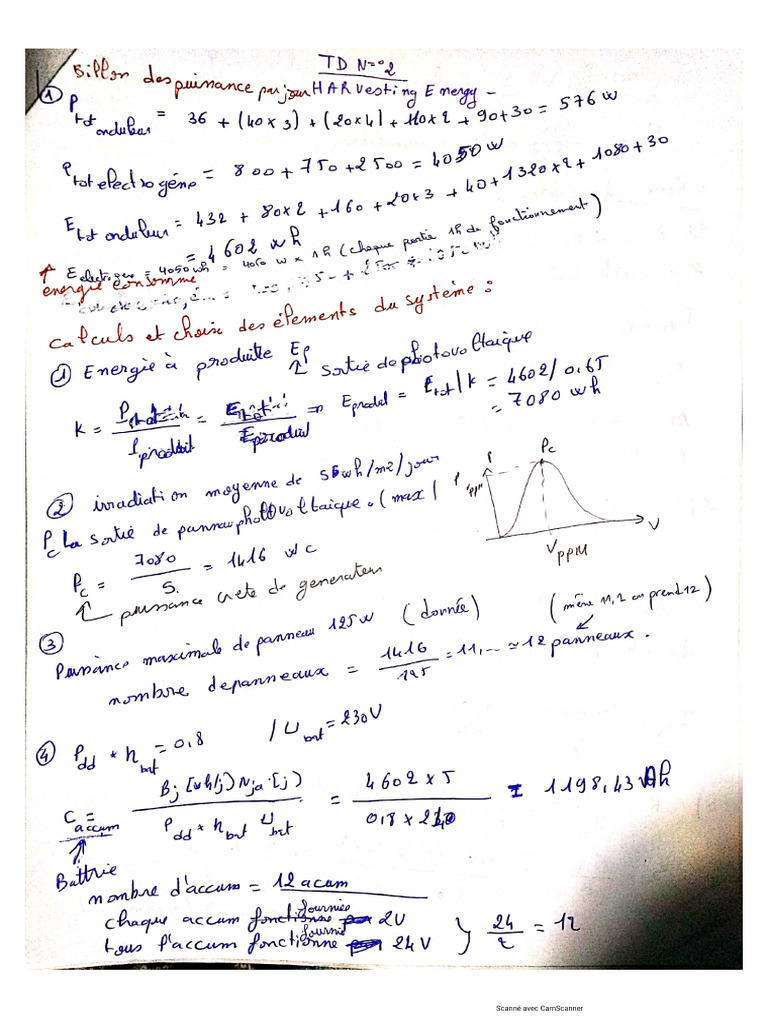 TD N=°2
Billon des puissance par jour HARVesting Energy -
① P tot onduleur = 36 + (40 x 3) + (20 x 4) + 110 x 2 + 90 + 30 = 576 w
P tot electrogéne = 800 + 750 + 2500 = 4050 w
E tot onduleur = 432 + 80 x 2 + 160 + 20 x 3 + 40 + 1320 x 2 + 1080 + 30
= 4602 w h
↑ E electrogene = 4050 wh = 4050 w x 1h (chaque partie 1h de fonctionnement)
energie consommé
Calculs et choix des élements du système :
① Energie à produite Ep
↳ Sortie de photovoltaïque
K = P / P produit = E / E produit => E produit = E tot / K = 4602 / 0.65
= 7080 wh
② irradiation moyenne de 5 kwh/m2/jour
Pc La sortie de panneau photovoltaique. (max)
P ppM P Pc V V ppM
Pc = 7080 / 5 = 1416 wc
↑ puissance crete de generateur
③ Puissance maximale de panneau 125 w (donnée) (même 11,2 on prend 12)
nombre de panneaux = 1416 / 125 = 11,... ≃ 12 panneaux.
④ Pdd * η bat = 0,8 / U bat = 230 V
C accum = Bj [wh/j) Nja.[j) / Pdd * η bat U bat = 4602 x 5 / 0,8 x = 1198,43 Ah
Battrie
nombre d'accum = 12 acum
chaque accum fonctionne fournies 2V
tous l'accum fonctionne fournit 24 V } 24 / 2 = 12
Scanné avec CamScanner